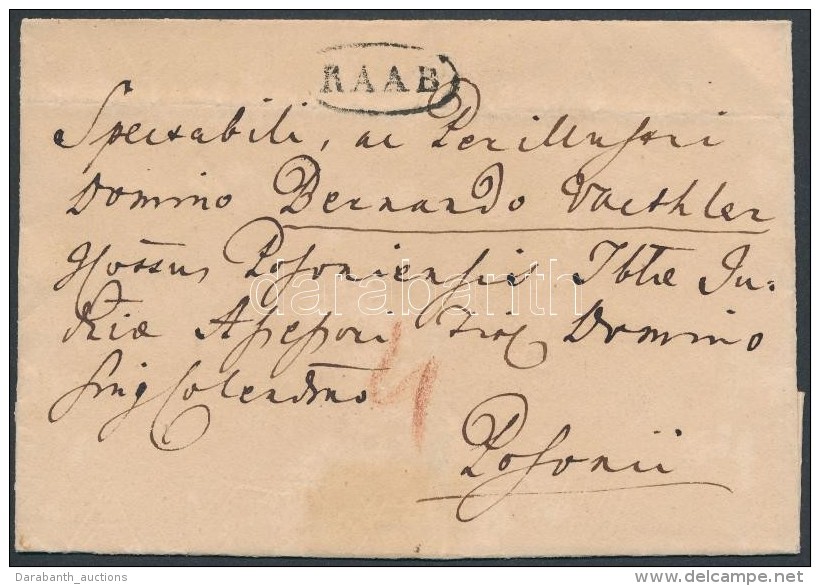 RAAB
Spectabili, ac Perillustri
Domino Bernardo Vaethler
Posoniensis Ibtæ Ju-
diæ Assessori Domino
Colendmo
4
Posonii
darabanth
Darabanth_auctions
delcampe.net